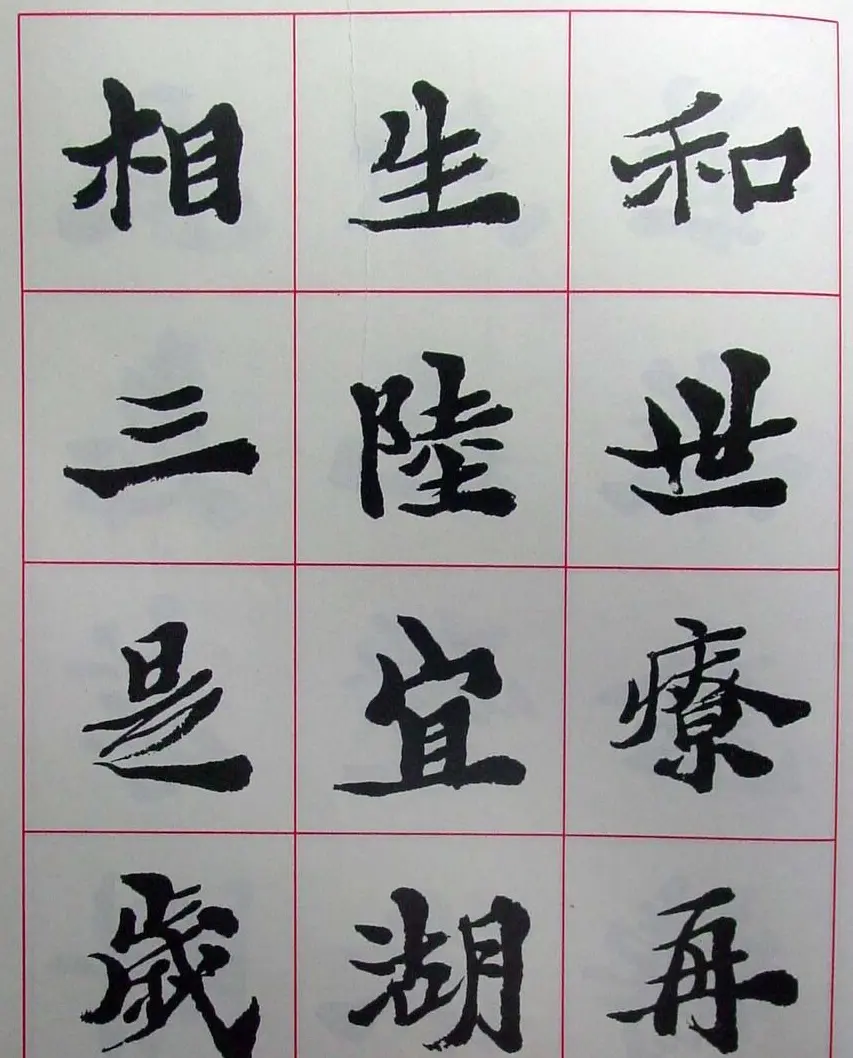 和世療再
生陸宜湖
相三是歲